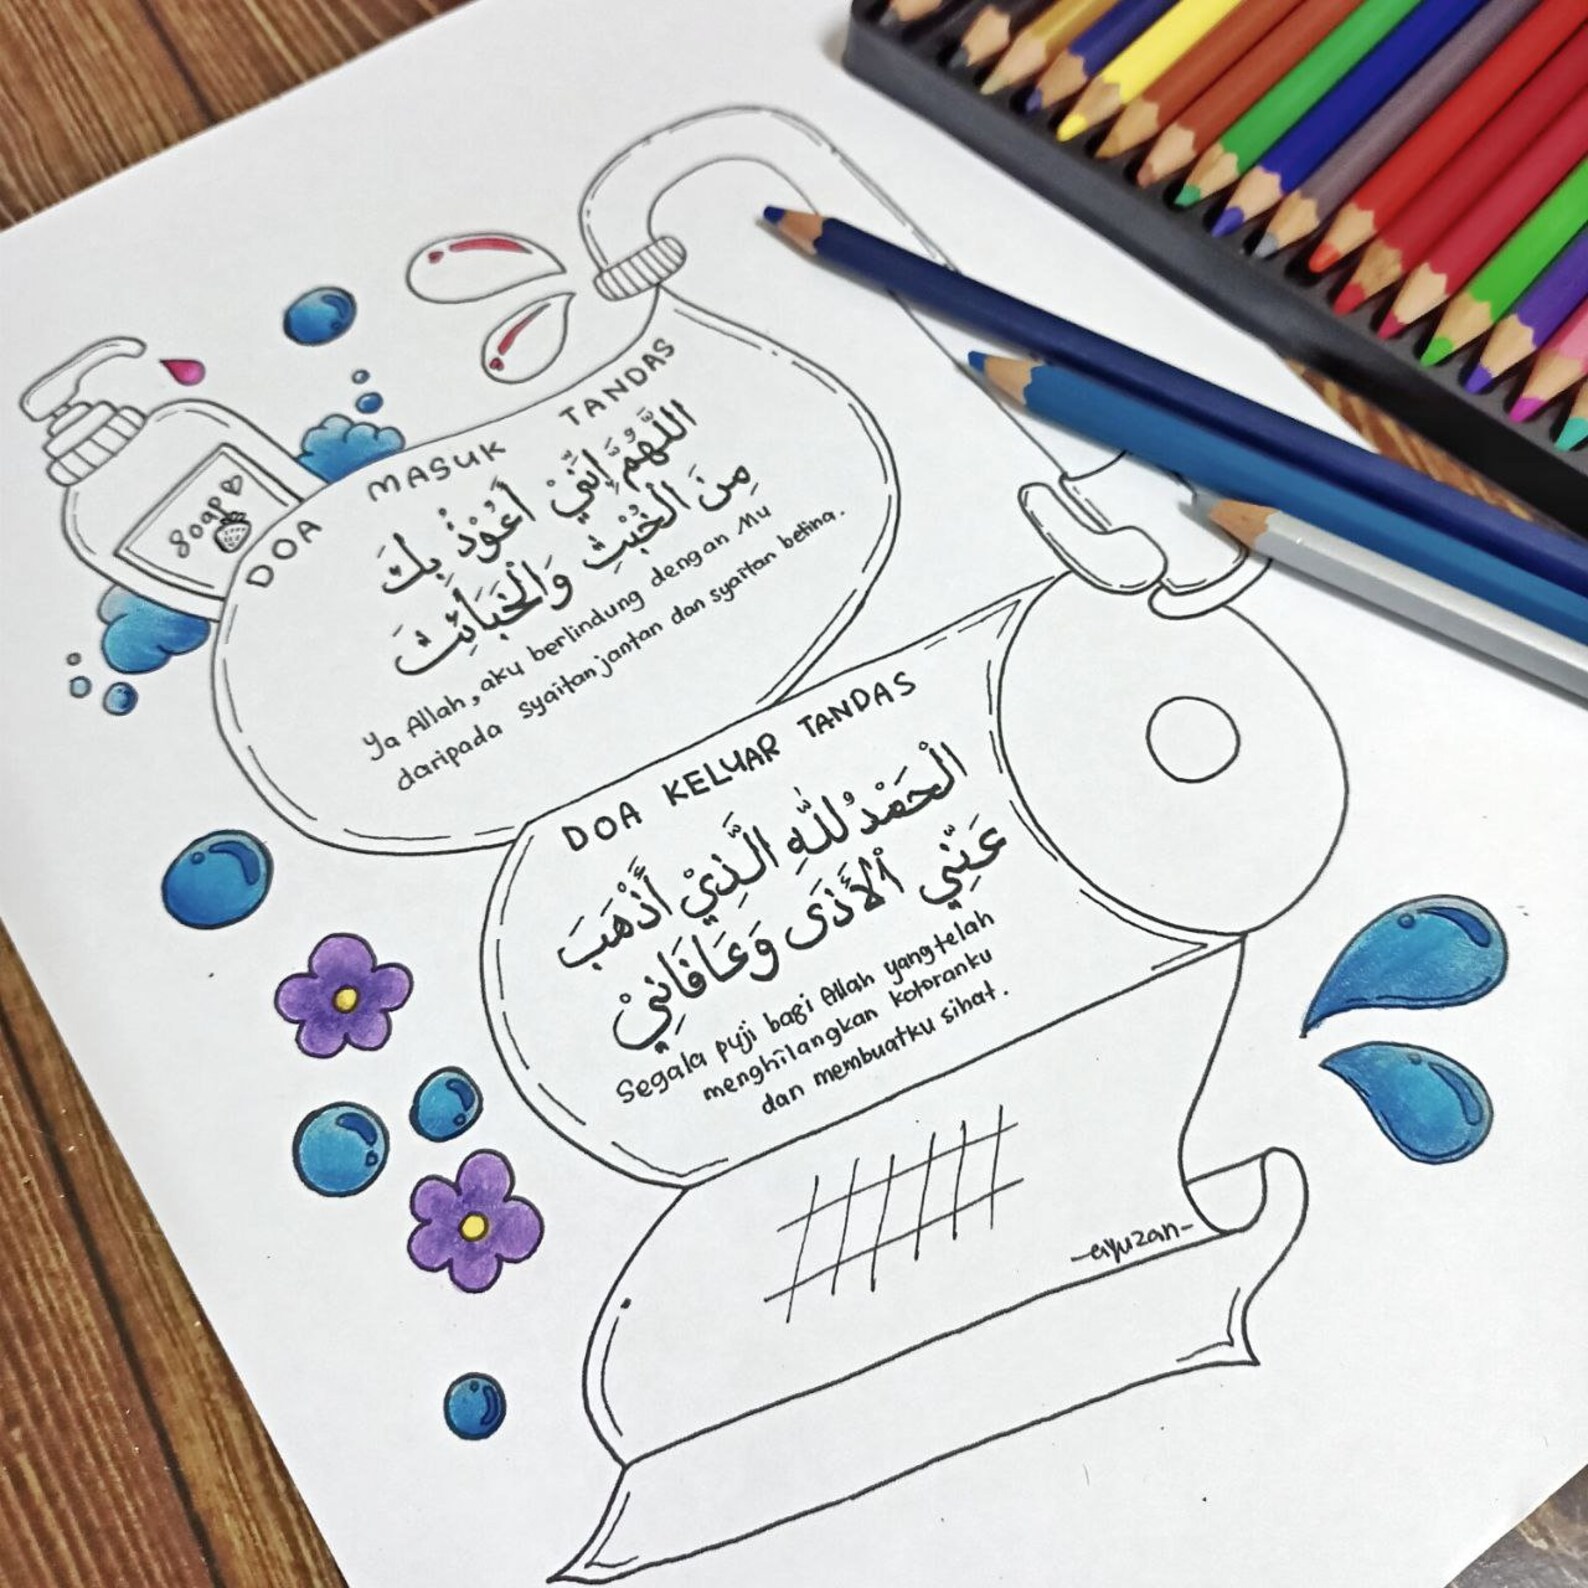 soap
DOA MASUK TANDAS
اللَّهُمَّ إِنِّيْ أَعُوْذُ بِكَ
مِنَ الْخُبْثِ وَالْخَبَائِثَ
Ya Allah, aku berlindung dengan Mu
daripada syaitan jantan dan syaitan betina.
DOA KELUAR TANDAS
الْحَمْدُ لِلّٰهِ الَّذِيْ أَذْهَبَ
عَنِّي ٱلْأَذَى وَعَافَانِيْ
Segala puji bagi Allah yang telah
menghilangkan kotoranku
dan membuatku sihat.
-ayuzan-